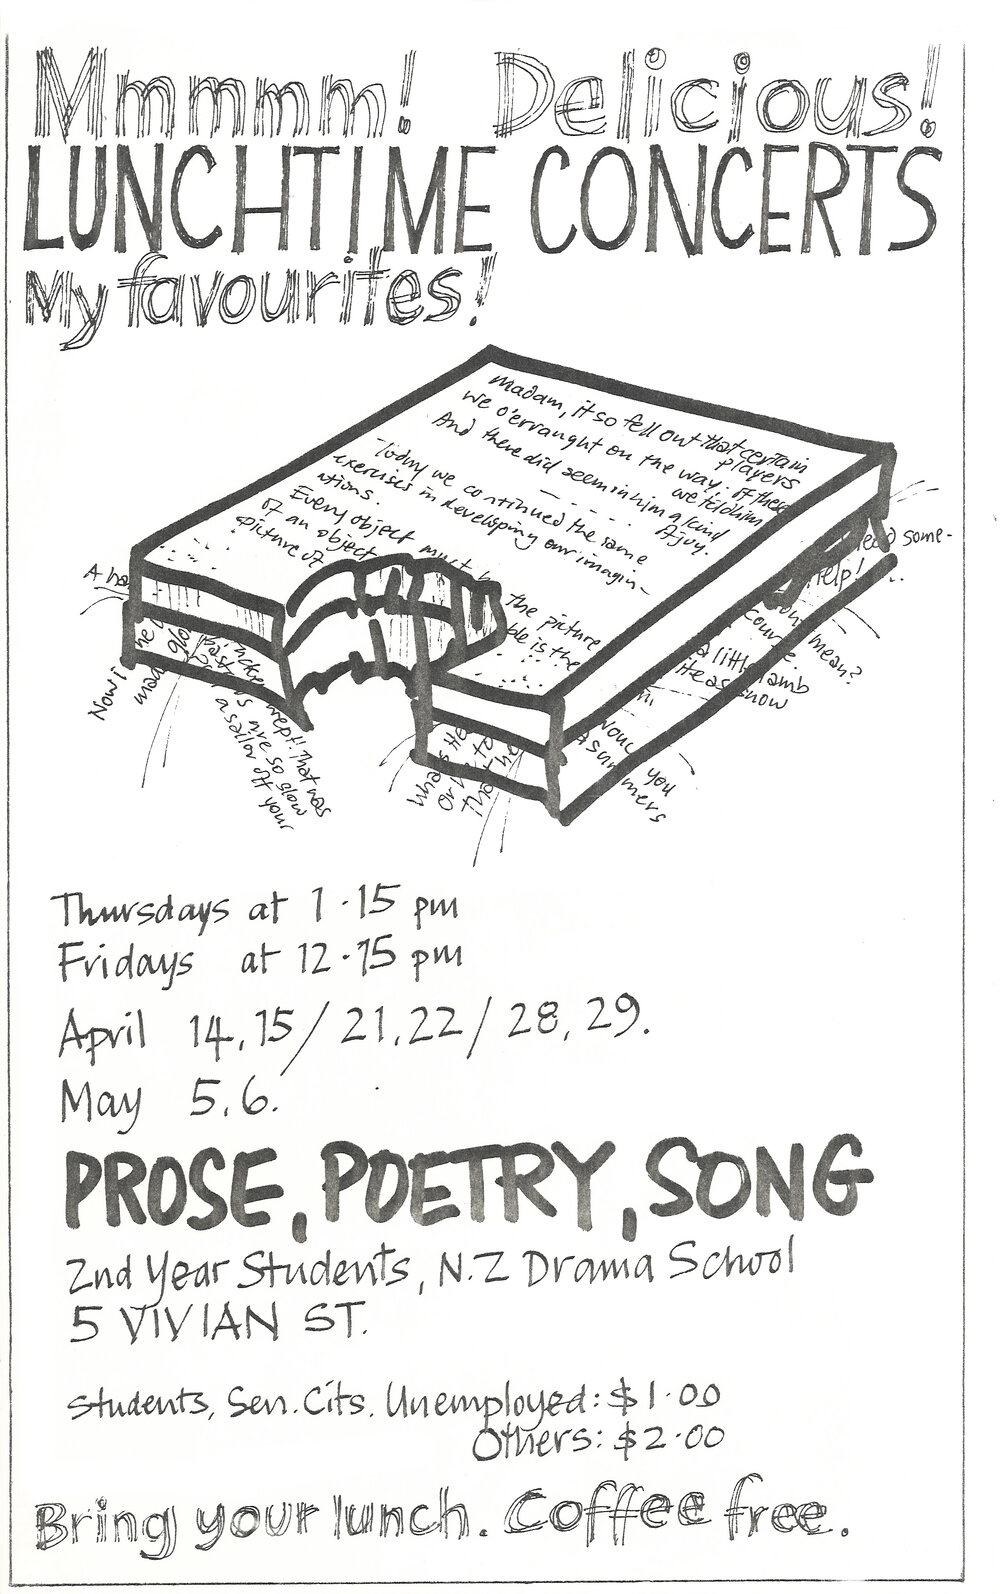 Mmmmm! Delicious!
LUNCHTIME CONCERTS
My favourites!
Madam, it so fell out that certain
players
we o'erraught on the way; of these
we told him
And there did seem in him a kind
of joy.
Today we continued the same
exercises in developing our imagin-
ations.
Every object must
of an object
the picture
picture of
ble is the
some-
help!
mean?
course.
a little lamb
snow
you
Now i
wept! That was
are so slow
a sailor off your
Thursdays at 1.15 pm
Fridays at 12.15 pm
April 14,15/ 21,22/ 28,29.
May 5,6.
PROSE, POETRY, SONG
2nd Year Students, N.Z Drama School
5 VIVIAN ST.
Students, Sen. Cits. Unemployed: $1.00
Others: $2.00
Bring your lunch. Coffee free.